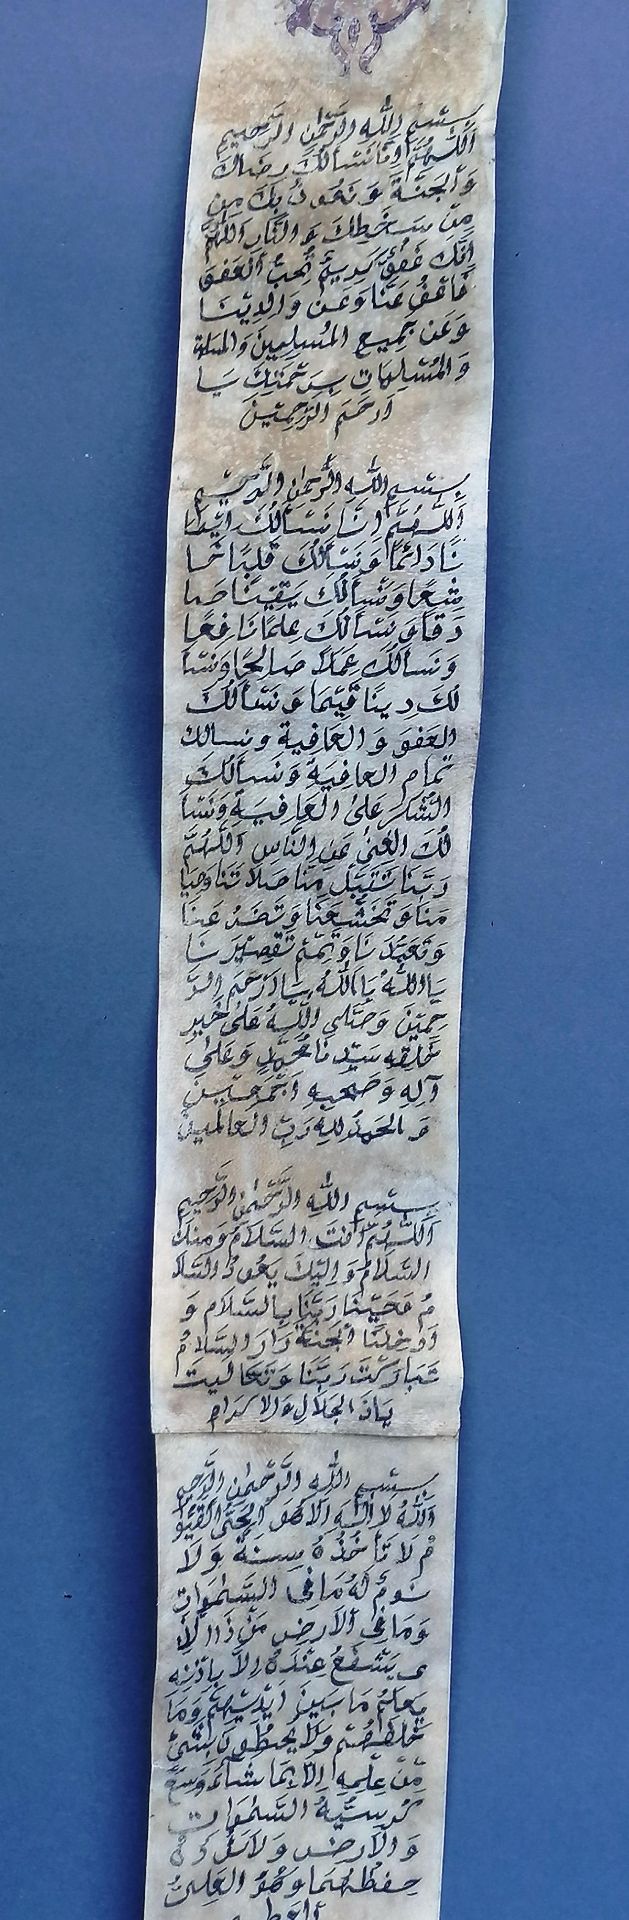 بسم الله الرحمن الرحيم
اَللّٰهُمَّ اِنَّا نَسْأَلُكَ رِضَاكَ
وَالْجَنَّةَ وَنَعُوذُ بِكَ مِن
مِنْ سَخَطِكَ وَالنَّارِ اللّٰهُمَّ
اِنَّكَ عَفُوٌّ كَرِيمٌ تُحِبُّ الْعَفْوَ
فَاعْفُ عَنَّا وَعَنْ وَالِدِيْنَا
وَعَن جَمِيعِ الْمُسْلِمِينَ
وَالْمُسْلِمَاتِ بِرَحْمَتِكَ يَا
اَرْحَمَ الرّٰحِمِيْنَ
بسم الله الرحمن الرحيم
اَللّٰهُمَّ اِنَّا نَسْأَلُكَ اِيْمَا
نًا دَائِمًا وَنَسْأَلُكَ قَلْبًا خَا
شِعًا وَنَسْأَلُكَ يَقِيْنًا صَا
دِقًا وَنَسْأَلُكَ عِلْمًا نَافِعًا
وَنَسْأَلُكَ عَمَلًا صَالِحًا وَنَسْأَ
لُكَ دِينًا قَيِّمًا وَنَسْأَلُكَ
العَفْوَ وَالعَافِيةَ ونسالك
تَمَام العافِيَةِ وَنَسْأَلُكَ
الشُّكْرَ عَلَى الْعَافِيَةِ وَنَسْأَ
لُكَ الْغِنٰى عَنِ النَّاسِ اَللّٰهُمَّ
رَبَّنَا تَقَبَّلْ مِنَّا صَلَاتَنَا وَصِيَا
مَنَا وَتَخَشُّعَنَا وَتَضَرُّعَنَا
وَتَعَبُّدَنَا وَتَمِّمْ تَقْصِيْرَنَا
يَا اَللّٰهُ يَا اَللّٰهُ يَا اَرْحَمَ الرَّ
حِمِيْنَ وَصَلَّى اللّٰهُ عَلٰى خَيْرِ
خَلْقِهِ سَيِّدِنَا مُحَمَّدٍ وَعَلٰى
آلِهِ وَصَحْبِهِ اَجْمَعِيْنَ
وَالْحَمْدُ لِلّٰهِ رَبِّ الْعَالَمِينَ
بسم الله الرحمن الرحيم
اَللّٰهُمَّ اَنْتَ السَّلَامُ وَمِنْكَ
السَّلَامُ وَاِلَيْكَ يَعُودُ السَّلَا
مُ فَحَيِّنَا رَبَّنَا بِالسَّلَامِ وَ
اَدْخِلْنَا الْجَنَّةَ دَارَ السَّلَامُ
تَبَارَكْتَ رَبَّنَا وَتَعَالَيْتَ
يَاذَا الجَلَالِ وَالاكرام
بسم الله الرحمن الرحيم
اَللّٰهُ لَا اِلٰهَ اِلَّا هُوَ الْحَيُّ الْقَيُّو
مُ لَا تَأْخُذُهُ سِنَةٌ وَلَا
نَوْمٌ لَهُ مَا فِي السَّمٰوَاتِ
وَمَا فِي الْاَرْضِ مَنْ ذَا الَّذِ
ى يَشْفَعُ عِنْدَهُ اِلَّا بِاِذْنِهِ
يَعْلَمُ مَا بَيْنَ اَيْدِيْهِمْ وَمَا
خَلْفَهُمْ وَلَا يُحِيطُونَ بِشَىْءٍ
مِنْ عِلْمِهِ اِلَّا بِمَا شَاءَ وَسِعَ
كُرْسِيُّهُ السَّمٰوَاتِ
وَالْاَرْضَ وَلَا يَئُودُهُ
حِفْظُهُمَا وَهُوَ الْعَلِيُّ
العظيم